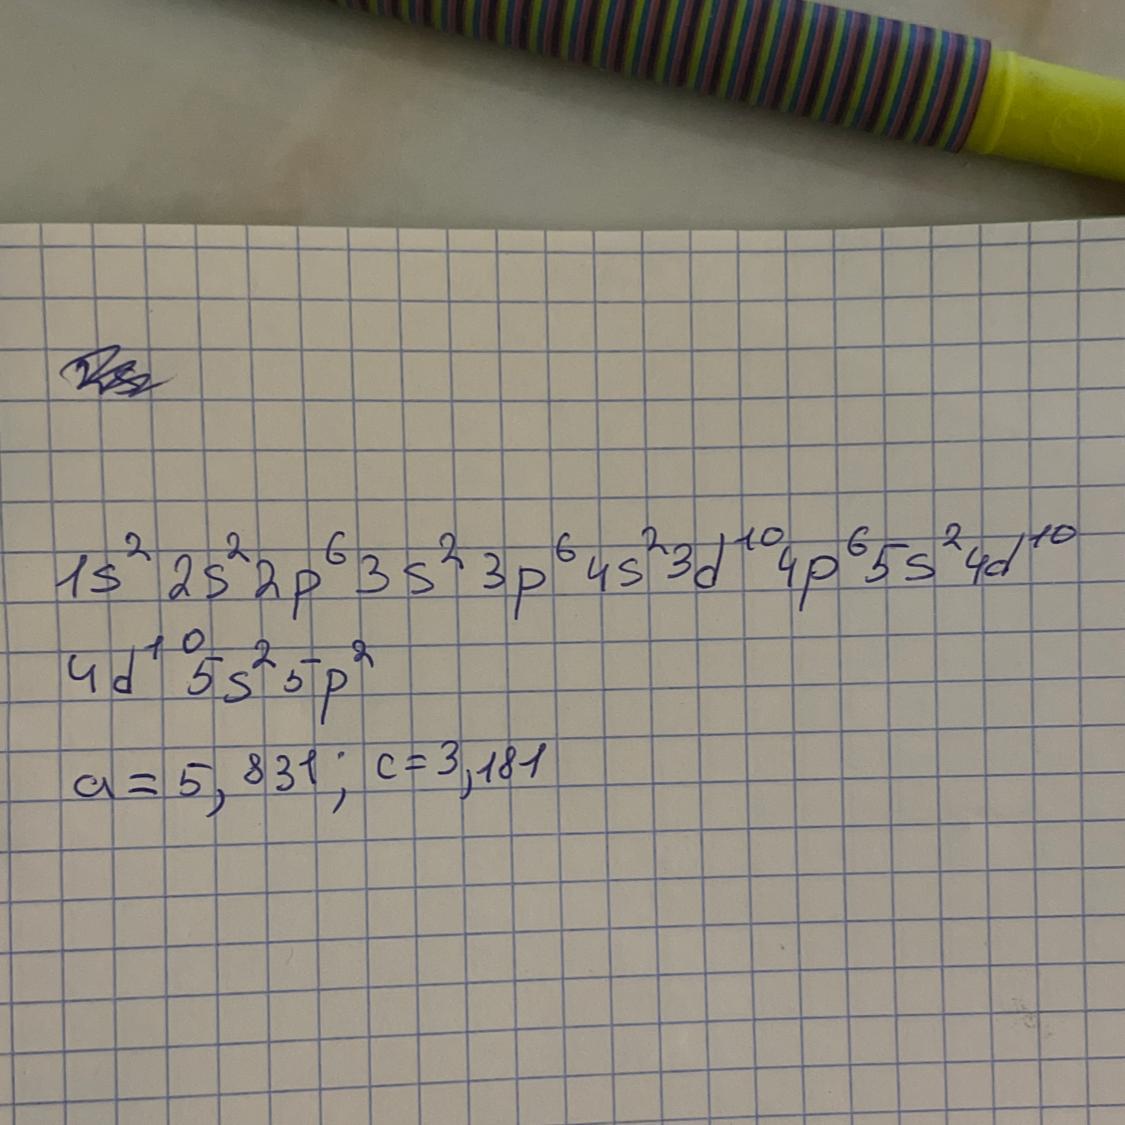 1s² 2s² 2p⁶ 3s² 3p⁶ 4s² 3d¹⁰ 4p⁶ 5s² 4d¹⁰
4d¹⁰ 5s² 5p²
a = 5,831; c = 3,181